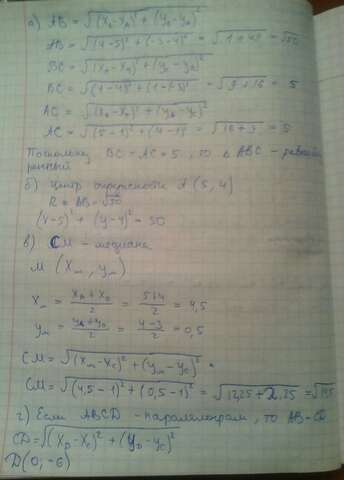 а) AB = √(x_B - x_A)² + (y_B - y_A)²
AB = √(4-5)² + (-3-4)² = √1 + 49 = √50
BC = √(x_C - x_B)² + (y_C - y_B)²
BC = √(1-4)² + (1-(-3))² = √9 + 16 = 5
AC = √(x_A - x_C)² + (y_A - y_C)²
AC = √(5-1)² + (4-1)² = √16 + 9 = 5
Поскольку BC = AC = 5, то
б) Центр окружности A (5, 4)
R = AB = √50
(x-5)² + (y-4)² = 50
в) CM - медиана
M (x_m, y_m)
x_m = x_A + x_B / 2 = 5+4 / 2 = 4,5
y_m = y_A + y_B / 2 = 4-3 / 2 = 0,5
CM = √(x_m - x_c)² + (y_m - y_c)²
CM = √(4,5-1)² + (0,5-1)² = √12,25 + 2,25 =
г) Если ABCD - параллелограм, то AB = CD
CD = √(x_D - x_C)² + (y_D - y_C)²
D(0; -6)